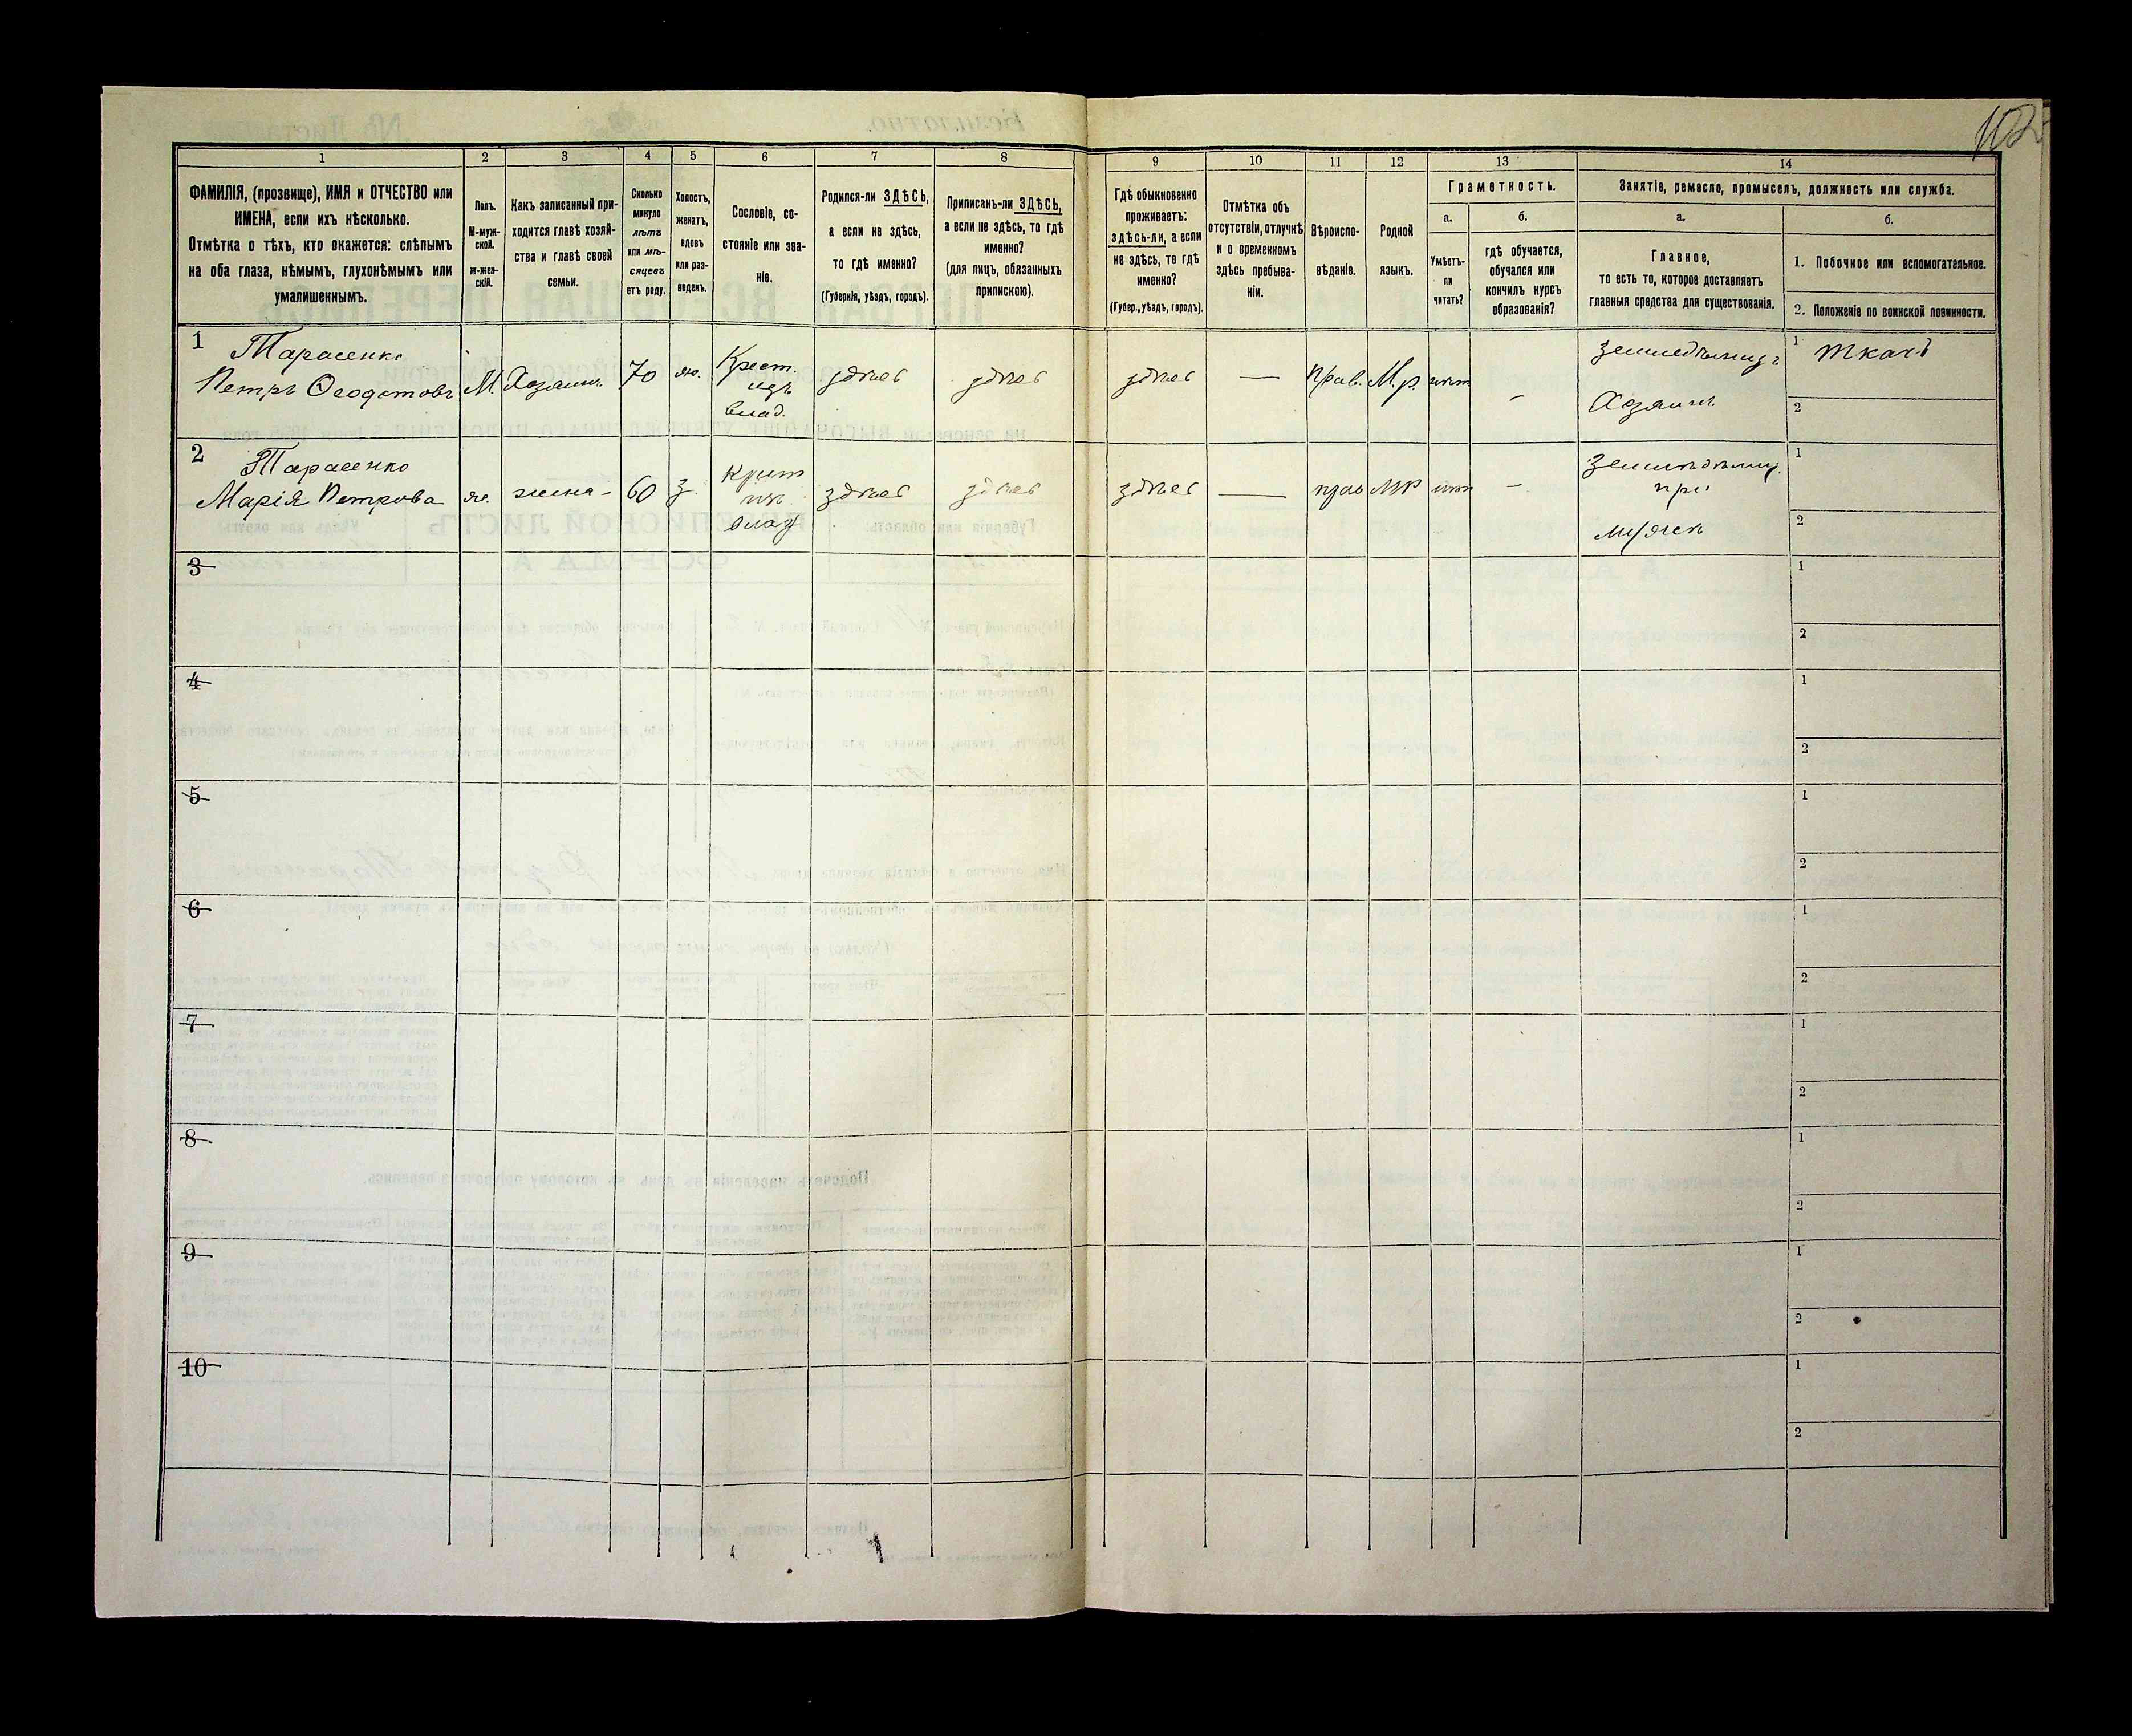 102
1 2 3 4 5 6 7 8 9 10 11 12 13 14
ФАМИЛІЯ, (прозвище), ИМЯ и ОТЧЕСТВО или
ИМЕНА, если ихъ нѣсколько.
Отмѣтка о тѣхъ, кто окажется: слѣпымъ
на оба глаза, нѣмымъ, глухонѣмымъ или
умалишеннымъ.
Полъ.
М-муж-
ской.
ж-жен-
скій.
Какъ записанный при-
ходится главѣ хозяй-
ства и главѣ своей
семьи.
Сколько
минуло
лѣтъ
или мѣ-
сяцевъ
отъ роду.
Холостъ,
женатъ,
вдовъ
или раз-
веденъ.
Сословіе, со-
стояніе или зва-
ніе.
Родился-ли ЗДѢСЬ,
а если не здѣсь,
то гдѣ именно?
(Губернія, уѣздъ, городъ).
Приписанъ-ли ЗДѢСЬ,
а если не здѣсь, то гдѣ
именно?
(для лицъ, обязанныхъ
припискою).
Гдѣ обыкновенно
проживаетъ:
здѣсь-ли, а если
не здѣсь, то гдѣ
именно?
(Губер., уѣздъ, городъ).
Отмѣтка объ
отсутствіи, отлучкѣ
и о временномъ
здѣсь пребыва-
ніи.
Вѣроиспо-
вѣданіе.
Родной
языкъ.
Грамотность.
а.
Умѣетъ-
ли
читать?
б.
гдѣ обучается,
обучался или
кончилъ курсъ
образованія?
Занятіе, ремесло, промыселъ, должность или служба.
а.
Главное,
то есть то, которое доставляетъ
главныя средства для существованія.
б.
1. Побочное или вспомогательное.
2. Положеніе по воинской повинности.
1 Тарасенко
Петръ Ѳеодотовъ М. Хозяинъ 70 же. Крест.
изъ
влад. здѣсь здѣсь здѣсь — прав. М.р. нѣт — Земледѣлиецъ
Хозяинъ 1 Ткачъ
2
2 Тарасенко
Марія Петрова же. жена - 60 з. Крест
изъ
влад здѣсь здѣсь здѣсь — прав МР нѣт —
при
мужѣ 1
2
3 1
2
4 1
2
5 1
2
6 1
2
7 1
2
8 1
2
9 1
2
10 1
2